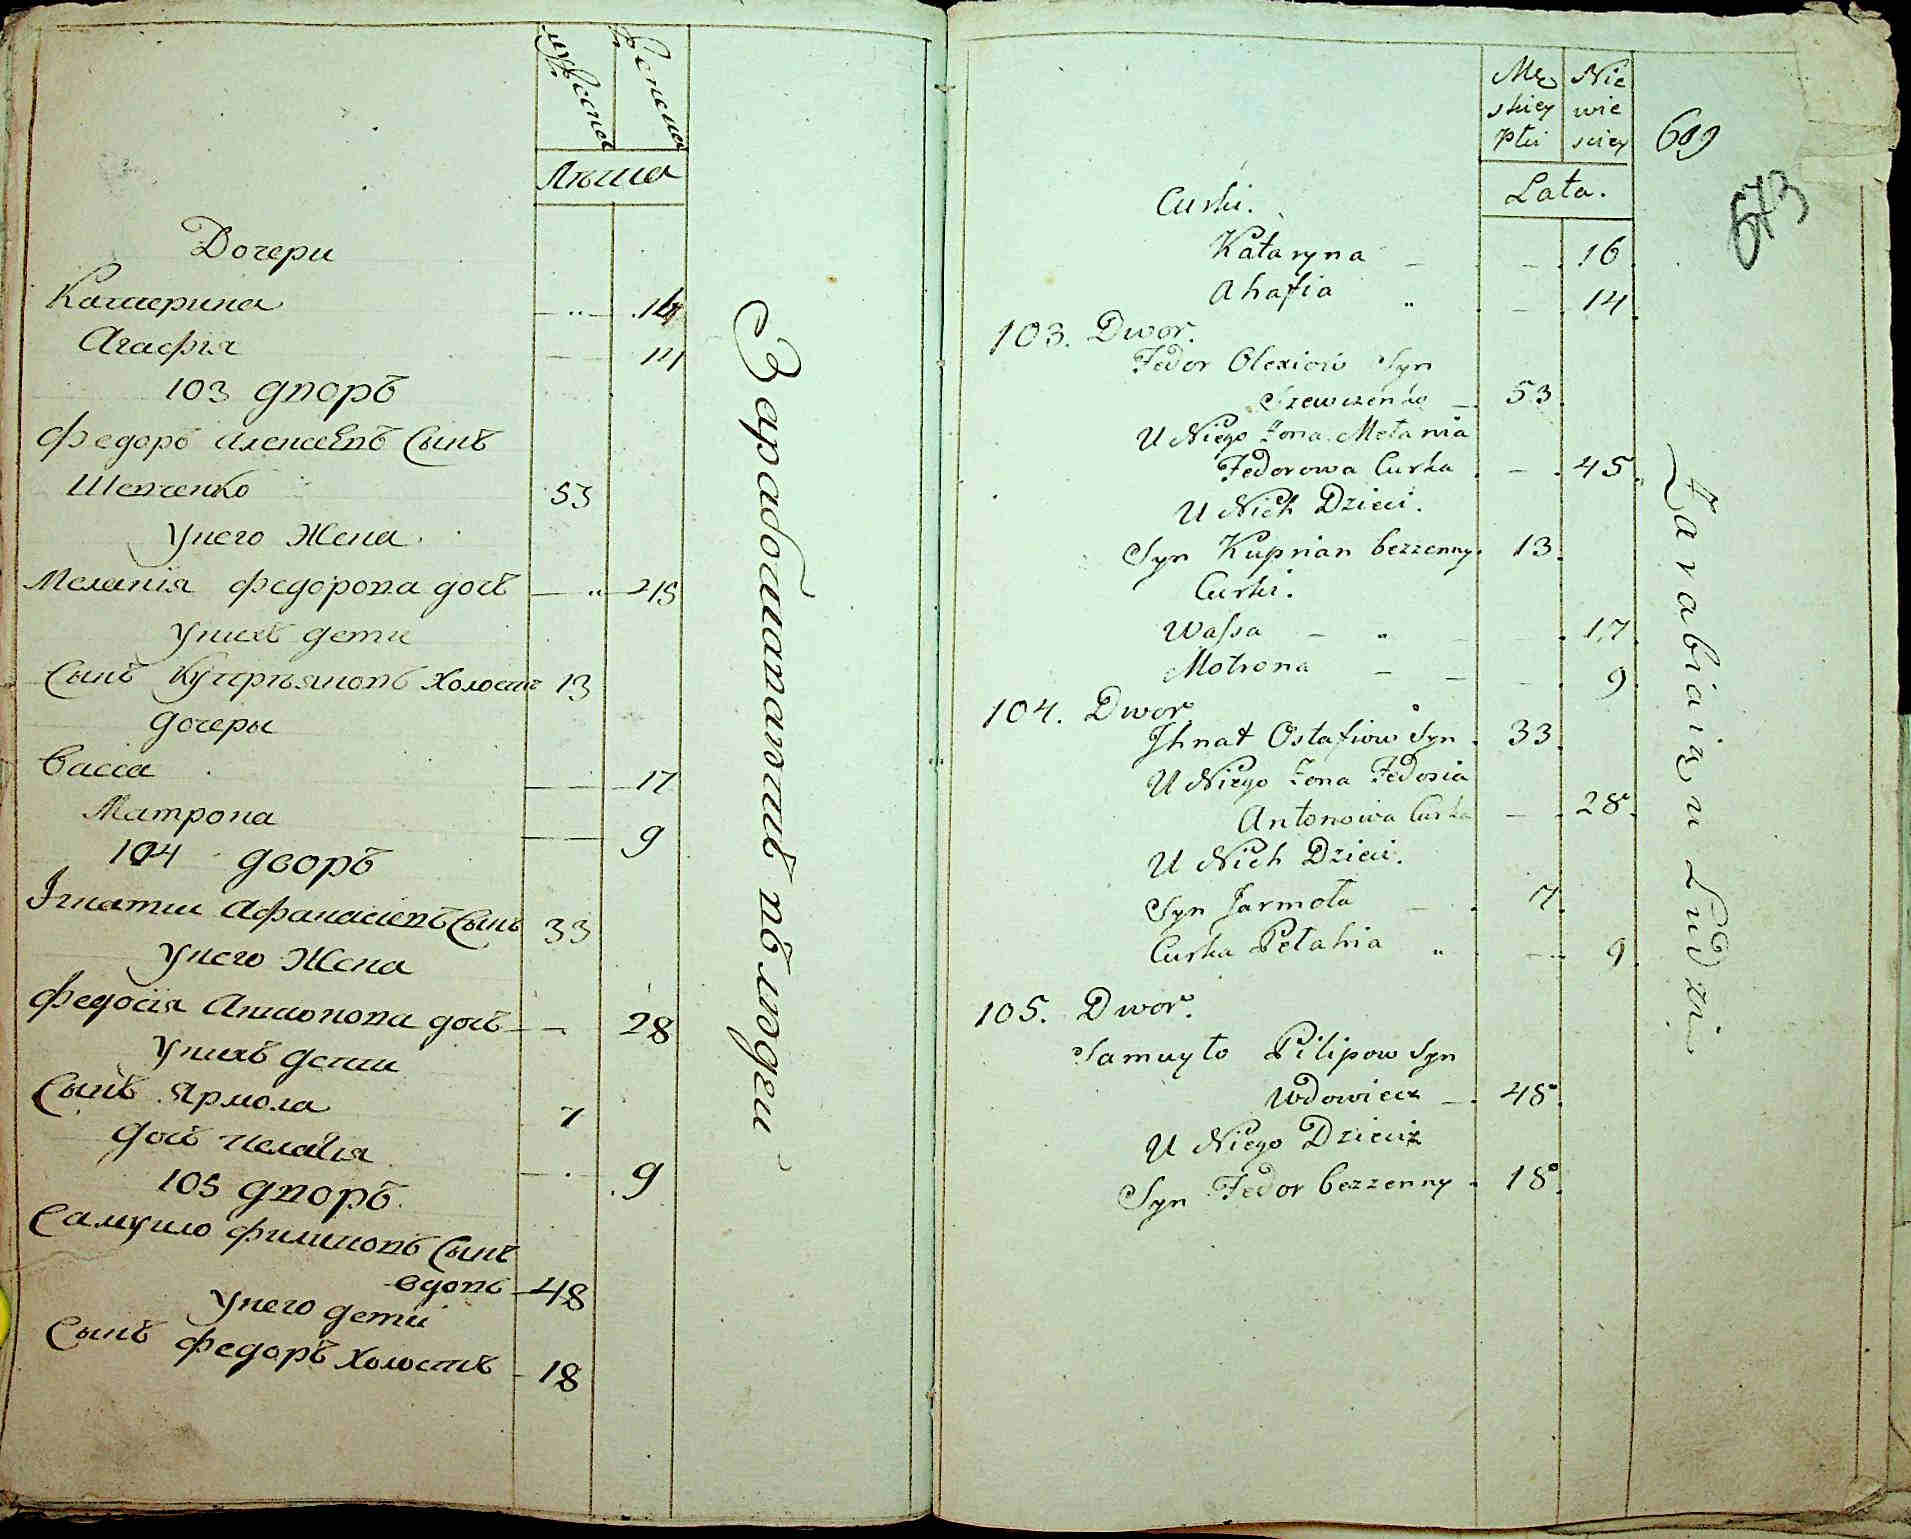 Мужеска
Женска
Лѣта
Дочери
Катерина 14
Агафия 14
103 дворъ
Федоръ Алексеевъ Сынъ
Шевченко 53
Унего Жена
Меланія Федорова дочь 45
Унихъ дети
Сынъ Холостъ 13
дочеры
Васса 17
Матрона 9
104 дворъ
Ігнатии Афанасиевъ Сынъ 33
Унего Жена
Федосія Антонова дочь 28
Унихъ дети
Сынъ Ярмола 7
дочь Пелагія 9
105 дворъ
Самуило Филиповъ Сынъ
вдовъ 48
Унего дети
Сынъ Федоръ Холостъ 18
Заработиватъ въ людеи
Mę Nie
skiey wie
Płci sciey
Lata.
609
673
Curki.
Kataryna 16
Ahafia 14
103. Dwor.
Fedor Olexiow Syn
Szewczenko 53.
U Niego Zona Mełania
Fedorowa Curka 45.
U Nich Dzieci.
Syn Kuprian bezzenny. 13.
Curki.
Wassa 17
Motrona 9.
104. Dwor
Jhnat Ostafiow Syn 33.
U Niego Zona Fedosia
Antonowa Curka 28.
U Nich Dzieci.
Syn Jarmoła 7.
Curka Pełahia 9.
105. Dwor.
Samuyło Pilipow Syn
Wdowiecz 48.
U Niego Dzieciz
Syn Fedor bezzenny 18.
Zarabiaią u Ludzi